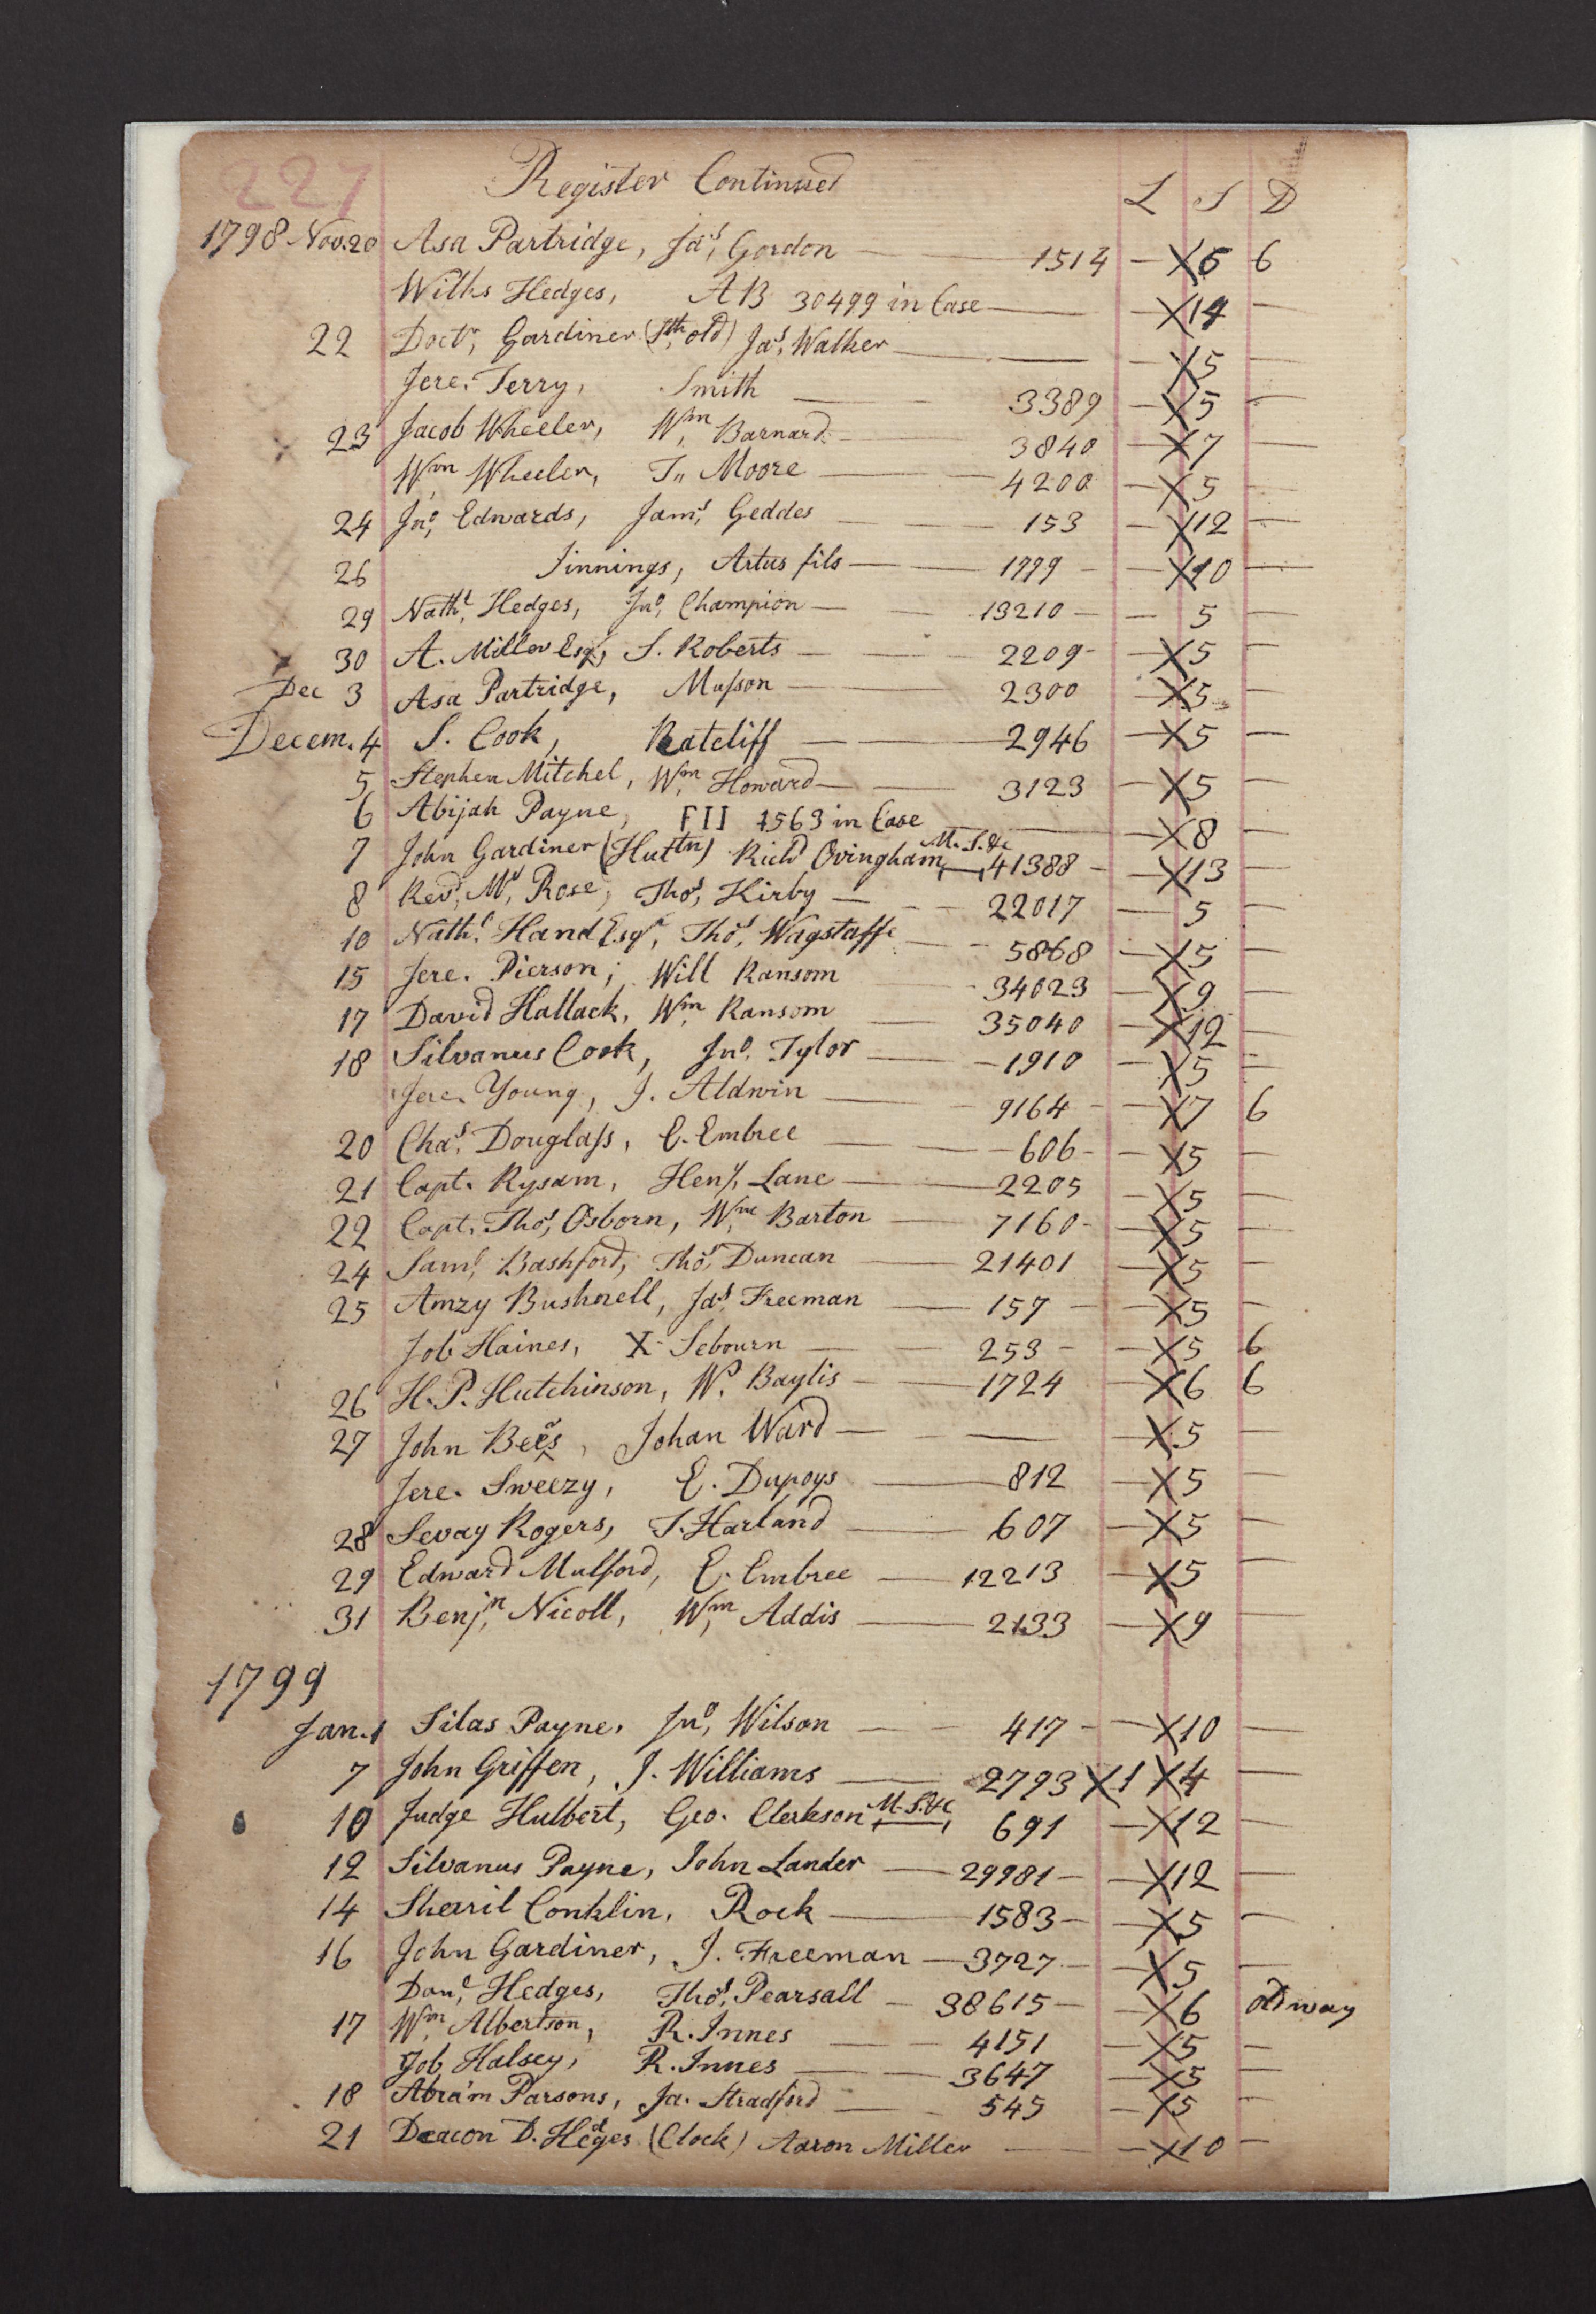 227 Register Continued L S D
1798 Nov. 20 Asa Partridge, Jas, Gordon — 1514 — X6 6
Wilks Hedges, AB 30499 in Case — X14 —
22 Doctr, Gardiner (Sth, old) Jas, Walker — — X5 —
Jere. Terry, Smith — 3389 — X5 —
23 Jacob Wheeler, Wm, Barnard — 3840 — X7 —
Wm Wheeler, T,, Moore — 4200 — X5 —
24 Jno, Edwards, Jams, Geddes — 153 — X12 —
26 Jinnings, Artus fils — 1779 — X10 —
29 Nathl, Hedges, Jno, Champion — 13210 — 5 —
30 A. Miller Esqr, S. Roberts — 2209 — X5 —
Dec 3 Asa Partridge, Musson — 2300 — X5 —
Decem. 4 S. Cook, Ratcliff — 2946 — X5 —
5 Stephen Mitchel, Wm, Howard — 3123 — X5 —
6 Abijah Payne, FII 4563 in Case — X8 —
7 John Gardiner (Huttn) Richd Ovingham, M. S. &c 41388 — X13 —
8 Revd, Mr, Rose, Thos, Kirby — 22017 — 5 —
10 Nathl. Hand Esqr, Thos, Wagstaffe — 5868 — X5 —
15 Jere. Pierson, Will Ransom — 34023 — X9 —
17 David Hallack, Wm, Ransom — 35040 — X12 —
18 Silvanus Cook, Jno, Tylor — 1910 — X5 —
Jere. Young, J. Aldwin — 9164 — X7 6
20 Chas, Douglass, E. Embree — 606 — X5 —
21 Capt. Rysam, Heny, Lane — 2205 — X5 —
22 Capt. Thos, Osborn, Wm, Barton — 7160 — X5 —
24 Saml, Bashford, Thos, Duncan — 21401 — X5 —
25 Amzy Bushnell, Jas, Freeman — 157 — X5 —
Job Haines, X Sebourn — 253 — X5 6
26 H. P. Hutchinson, W. Baylis — 1724 — X6 6
27 John Bees, Johan Ward — — X5 —
Jere. Sweezy, E. Dupoys — 812 — X5 —
28 Sevay Rogers, T. Harland — 607 — X5 —
29 Edward Mulford, E. Embree — 12213 — X5 —
31 Benjn, Nicoll, Wm, Addis — 2133 — X9 —
1799
Jan. 1 Silas Payne, Jno, Wilson — 417 — X10 —
7 John Griffen, J. Williams — 2793 X1 X4 —
10 Judge Hulbert, Geo. Clerkson M. S. &c 691 — X12 —
12 Silvanus Payne, John Lander — 29981 — X12 —
14 Sherril Conklin, Rock — 1583 — X5 —
16 John Gardiner, J. Freeman — 3727 — X5 —
Danl, Hedges, Thos, Pearsall — 38615 — X6 old way
17 Wm, Albertson, R. Innes — 4151 — X5 —
Job Halsey, R. Innes — 3647 — X5 —
18 Abra'm Parsons, Ja. Stradford — 545 — X5 —
21 Deacon D. Hedges (Clock) Aaron Miller — — X10 —